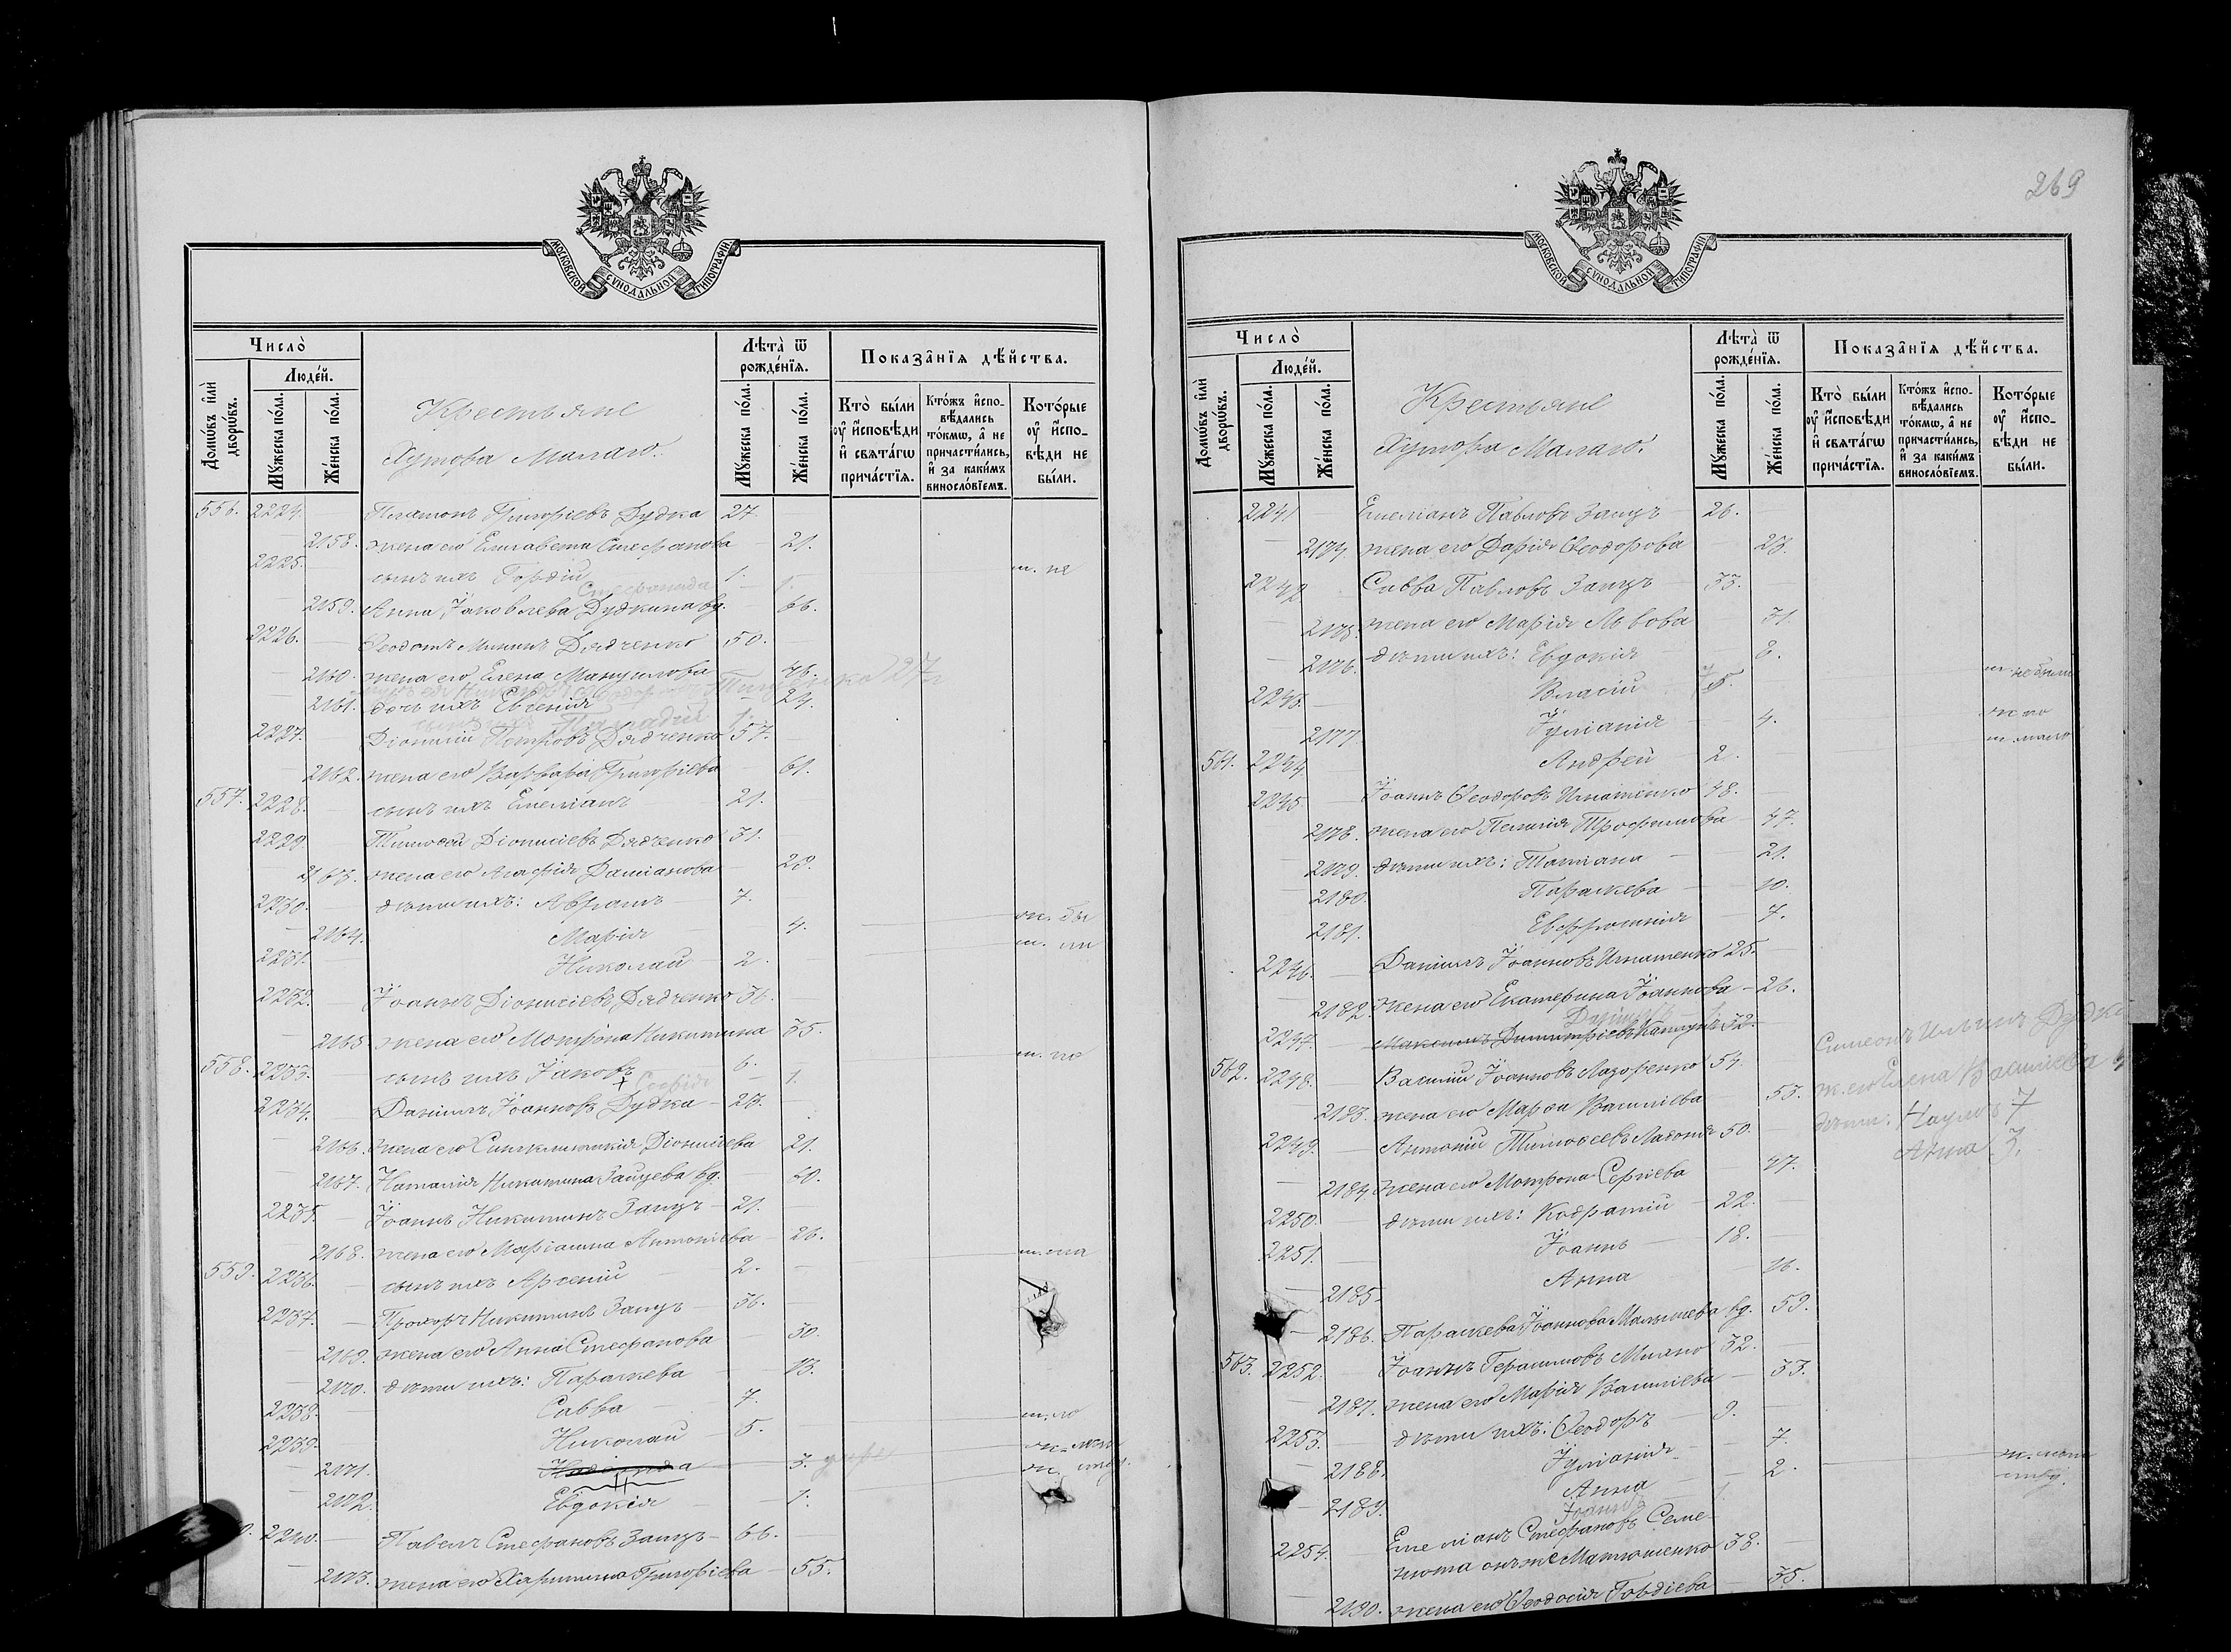 269
МОСКОВСКОЙ СУНОДАЛЬНОЙ ТИПОГРАФІИ
Число̀
Людéй.
Домѡ́въ и҆лѝ дворѡ́въ.
Мꙋ́жеска по́ла.
Же́нска по́ла.
Крестьяне
Хутора Малаго.
Лѣта̀ ѿ рожде́нїѧ.
Мꙋ́жеска по́ла.
Же́нска по́ла.
Показа̑нїѧ дѣ́йства.
Кто̀ бы́ли ᲂу҆ и҆́сповѣди и҆ свѧта́гѡ прича́стїѧ.
Кто́жъ и҆спо-вѣ́дались то́кмѡ, а҆ не причасти́лись, и҆ за каки́мъ винослóвїемъ.
Кото́рые ᲂу҆ и҆́спо-вѣди не бы́ли.
556. 2224 Платонъ Григоріевъ Дудка 27
2158. жена его Елисавета Стефанова 21.
2225. сынъ ихъ Гордій 1. м. не
Стефанида 1.
2159. Анна Іаковлева Дудкина вд. 66.
2226. Ѳеодотъ Мининъ Дядченко 50.
2160. жена его Елена Мануилова 46.
2161. дочь ихъ Евгенія 24.
сынъ ихъ Палладій 1.
2227. Діонисій Петровъ Дядченко 57.
2162. жена его Варвара Григоріева 61.
557. 2228. сынъ ихъ Емеліанъ 21.
2229 Тимоѳей Діонисіевъ Дядченко 31.
2163. жена его Агафія Даміанова 29.
2230. дѣти ихъ: Авраамъ 7.
2164. Марія 4.
2231. Николай 2.
2232. Іоаннъ Діонисіевъ Дядченко 36.
2165. жена его Матрона Никитина 35.
558. 2233. сынъ ихъ Іаковъ 6.
Софія 1.
2234. Даніилъ Іоанновъ Дудка 23.
2166. жена его Синклитикія Діонисіева 21.
2167. Наталія Никитина Зайцева вд. 60.
2235. Іоаннъ Никитинъ Заяцъ 21.
2168. жена его Маріанна Антоніева 26.
559. 2236. сынъ ихъ Арсеній 2.
2237. Прохоръ Никитинъ Заяцъ 36.
2169. жена его Анна Стефанова 30.
2170. дѣти ихъ: Параскева 13.
2238. Савва 7.
2239. Николай 5.
2171. 3.
2172. Евдокія 1.
2240. Павелъ Стефановъ Заяцъ 66.
2173. жена его Харитина Григоріева 55.
МОСКОВСКОЙ СУНОДАЛЬНОЙ ТИПОГРАФІИ
Число̀
Людéй.
Домѡ́въ и҆лѝ дворѡ́въ.
Мꙋ́жеска по́ла.
Же́нска по́ла.
Крестьяне
Хутора Малаго.
Лѣта̀ ѿ рожде́нїѧ.
Мꙋ́жеска по́ла.
Же́нска по́ла.
Показа̑нїѧ дѣ́йства.
Кто̀ бы́ли ᲂу҆ и҆́сповѣди и҆ свѧта́гѡ прича́стїѧ.
Кто́жъ и҆спо-вѣ́дались то́кмѡ, а҆ не причасти́лись, и҆ за каки́мъ винослóвїемъ.
Кото́рые ᲂу҆ и҆́спо-вѣди не бы́ли.
2241 Емеліанъ Павловъ Заяцъ 26.
2174. жена его Дарія Ѳеодорова 23.
2242 Савва Павловъ Заяцъ 33.
2175. жена его Марія Львова 31.
2176. дѣти ихъ: Евдокія 8.
2243. Власій 5.
2177. Іуліанія 4.
561. 2244. Андрей 2.
2245. Іоаннъ Ѳеодоровъ Игнатенко 48.
2178. жена его Пелагія Трофимова 47.
2179. дѣти ихъ: Татіана 21.
2180. Параскева 10.
2181. Евфросинія 7.
2246. Даніилъ Іоанновъ Игнатенко 25.
2182. жена его Екатерина Іоаннова 26.
2247. Максимъ Димитріевъ 32.
562. 2248. Василій Іоанновъ Лазоренко 54.
2183. жена его Марѳа Василіева 53.
2249. Антоній Тимоѳеевъ 50.
2184. жена его Матрона Сергіева 47.
2250. дѣти ихъ: Кодратій 22.
2251. Іоаннъ 18.
2185. Анна 16.
2186. Параскева Іоаннова вд. 59.
563. 2252. Іоаннъ Герасимовъ 32.
2187. жена его Марія Василіева 33.
2253. дѣти ихъ: Ѳеодоръ 9.
2188. Іуліанія 7.
2189. Анна 2.
2254. Емеліанъ Стефановъ Семе-
нюта онъ же Матюшенко 38.
2190. жена его Ѳеодосія Гордіева 35.
Симеонъ Ильинъ Дудка
ж. его Елена Василіева
дѣти: Наумъ 7
Анна 3.